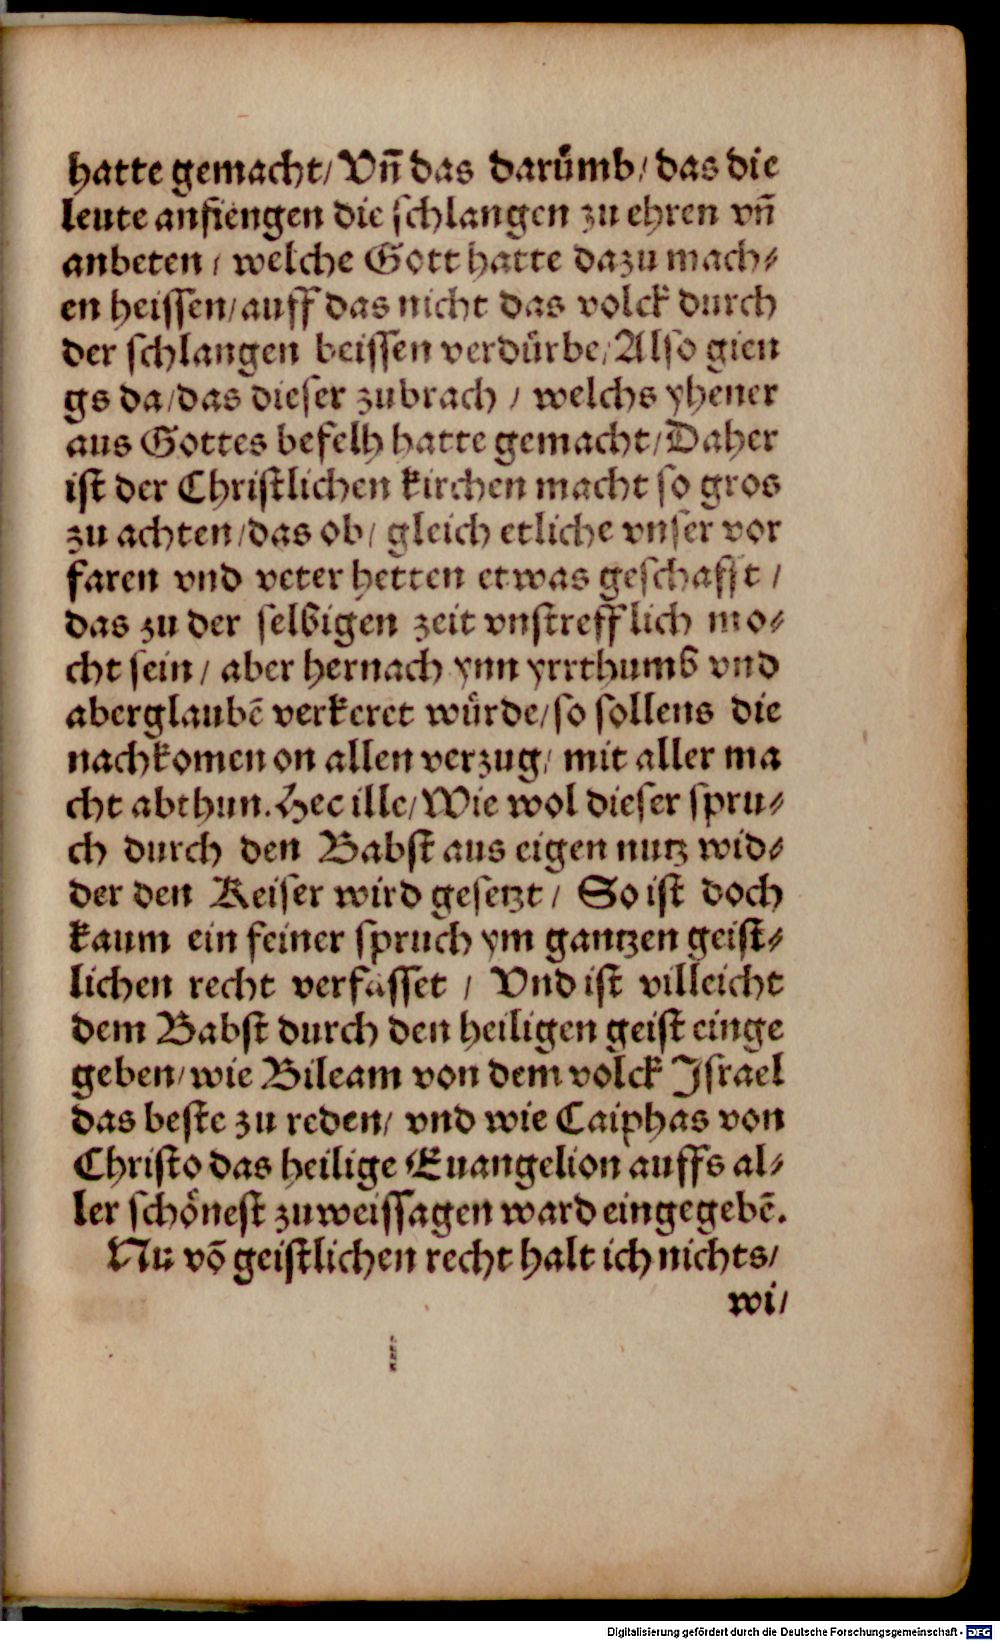 hatte gemacht/ Vn̄ das darůmb/ das die
leute anfiengen die schlangen zu ehren vn̄
anbeten / welche Gott hatte dazu mach⸗
en heissen/ auff das nicht das volck durch
der schlangen beissen verdürbe/ Also gien
gs da/ das dieser zubrach / welchs yhener
aus Gottes befelh hatte gemacht/ Daher
ist der Christlichen kirchen macht so gros
zu achten/ das ob/ gleich etliche vnser vor
faren vnd veter hetten etwas geschafft /
das zu der selbigen zeit vnstrefflich mo⸗
cht sein / aber hernach ynn yrrthumb vnd
aberglaubē verkeret würde/ so sollens die
nachkomen on allen verzug/ mit aller ma
cht abthun. Hec ille/ Wie wol dieser spru⸗
ch durch den Babst aus eigen nutz wid⸗
der den Keiser wird gesetzt / So ist doch
kaum ein feiner spruch ym gantzen geist⸗
lichen recht verfasset / Vnd ist villeicht
dem Babst durch den heiligen geist einge
geben/ wie Bileam von dem volck Israel
das beste zu reden/ vnd wie Caiphas von
Christo das heilige Euangelion auffs al⸗
ler schönest zuweissagen ward eingegebē.
Nu vō geistlichen recht halt ich nichts/
wi/
Digitalisierung gefördert durch die Deutsche Forschungsgemeinschaft - DFG